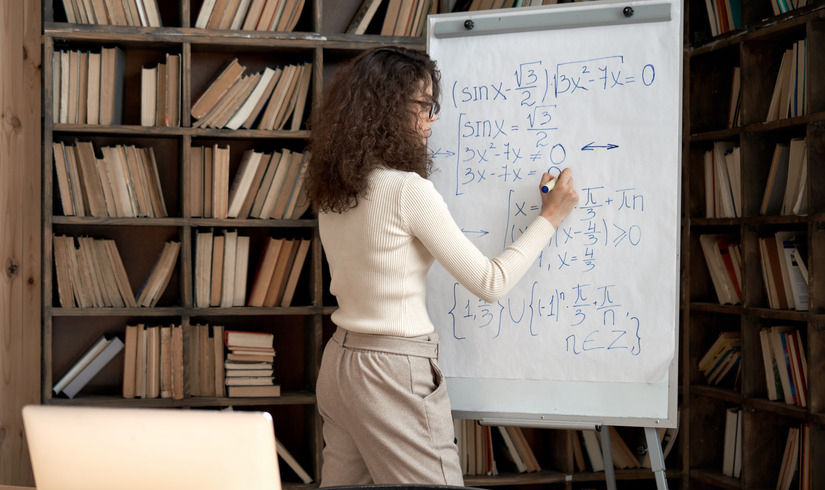 (sinx - √3/2)·√3x²-7x = 0
[ sinx = √3/2
3x²-7x ≠ 0 ↔
3x-7x =
[ x = π/3 + πn
(x - 4/3) ⩾ 0
1, x = 4/3
{1, 4/3} ∪ {(-1)ⁿ·π/3 + π/n,
n ∈ Z,}